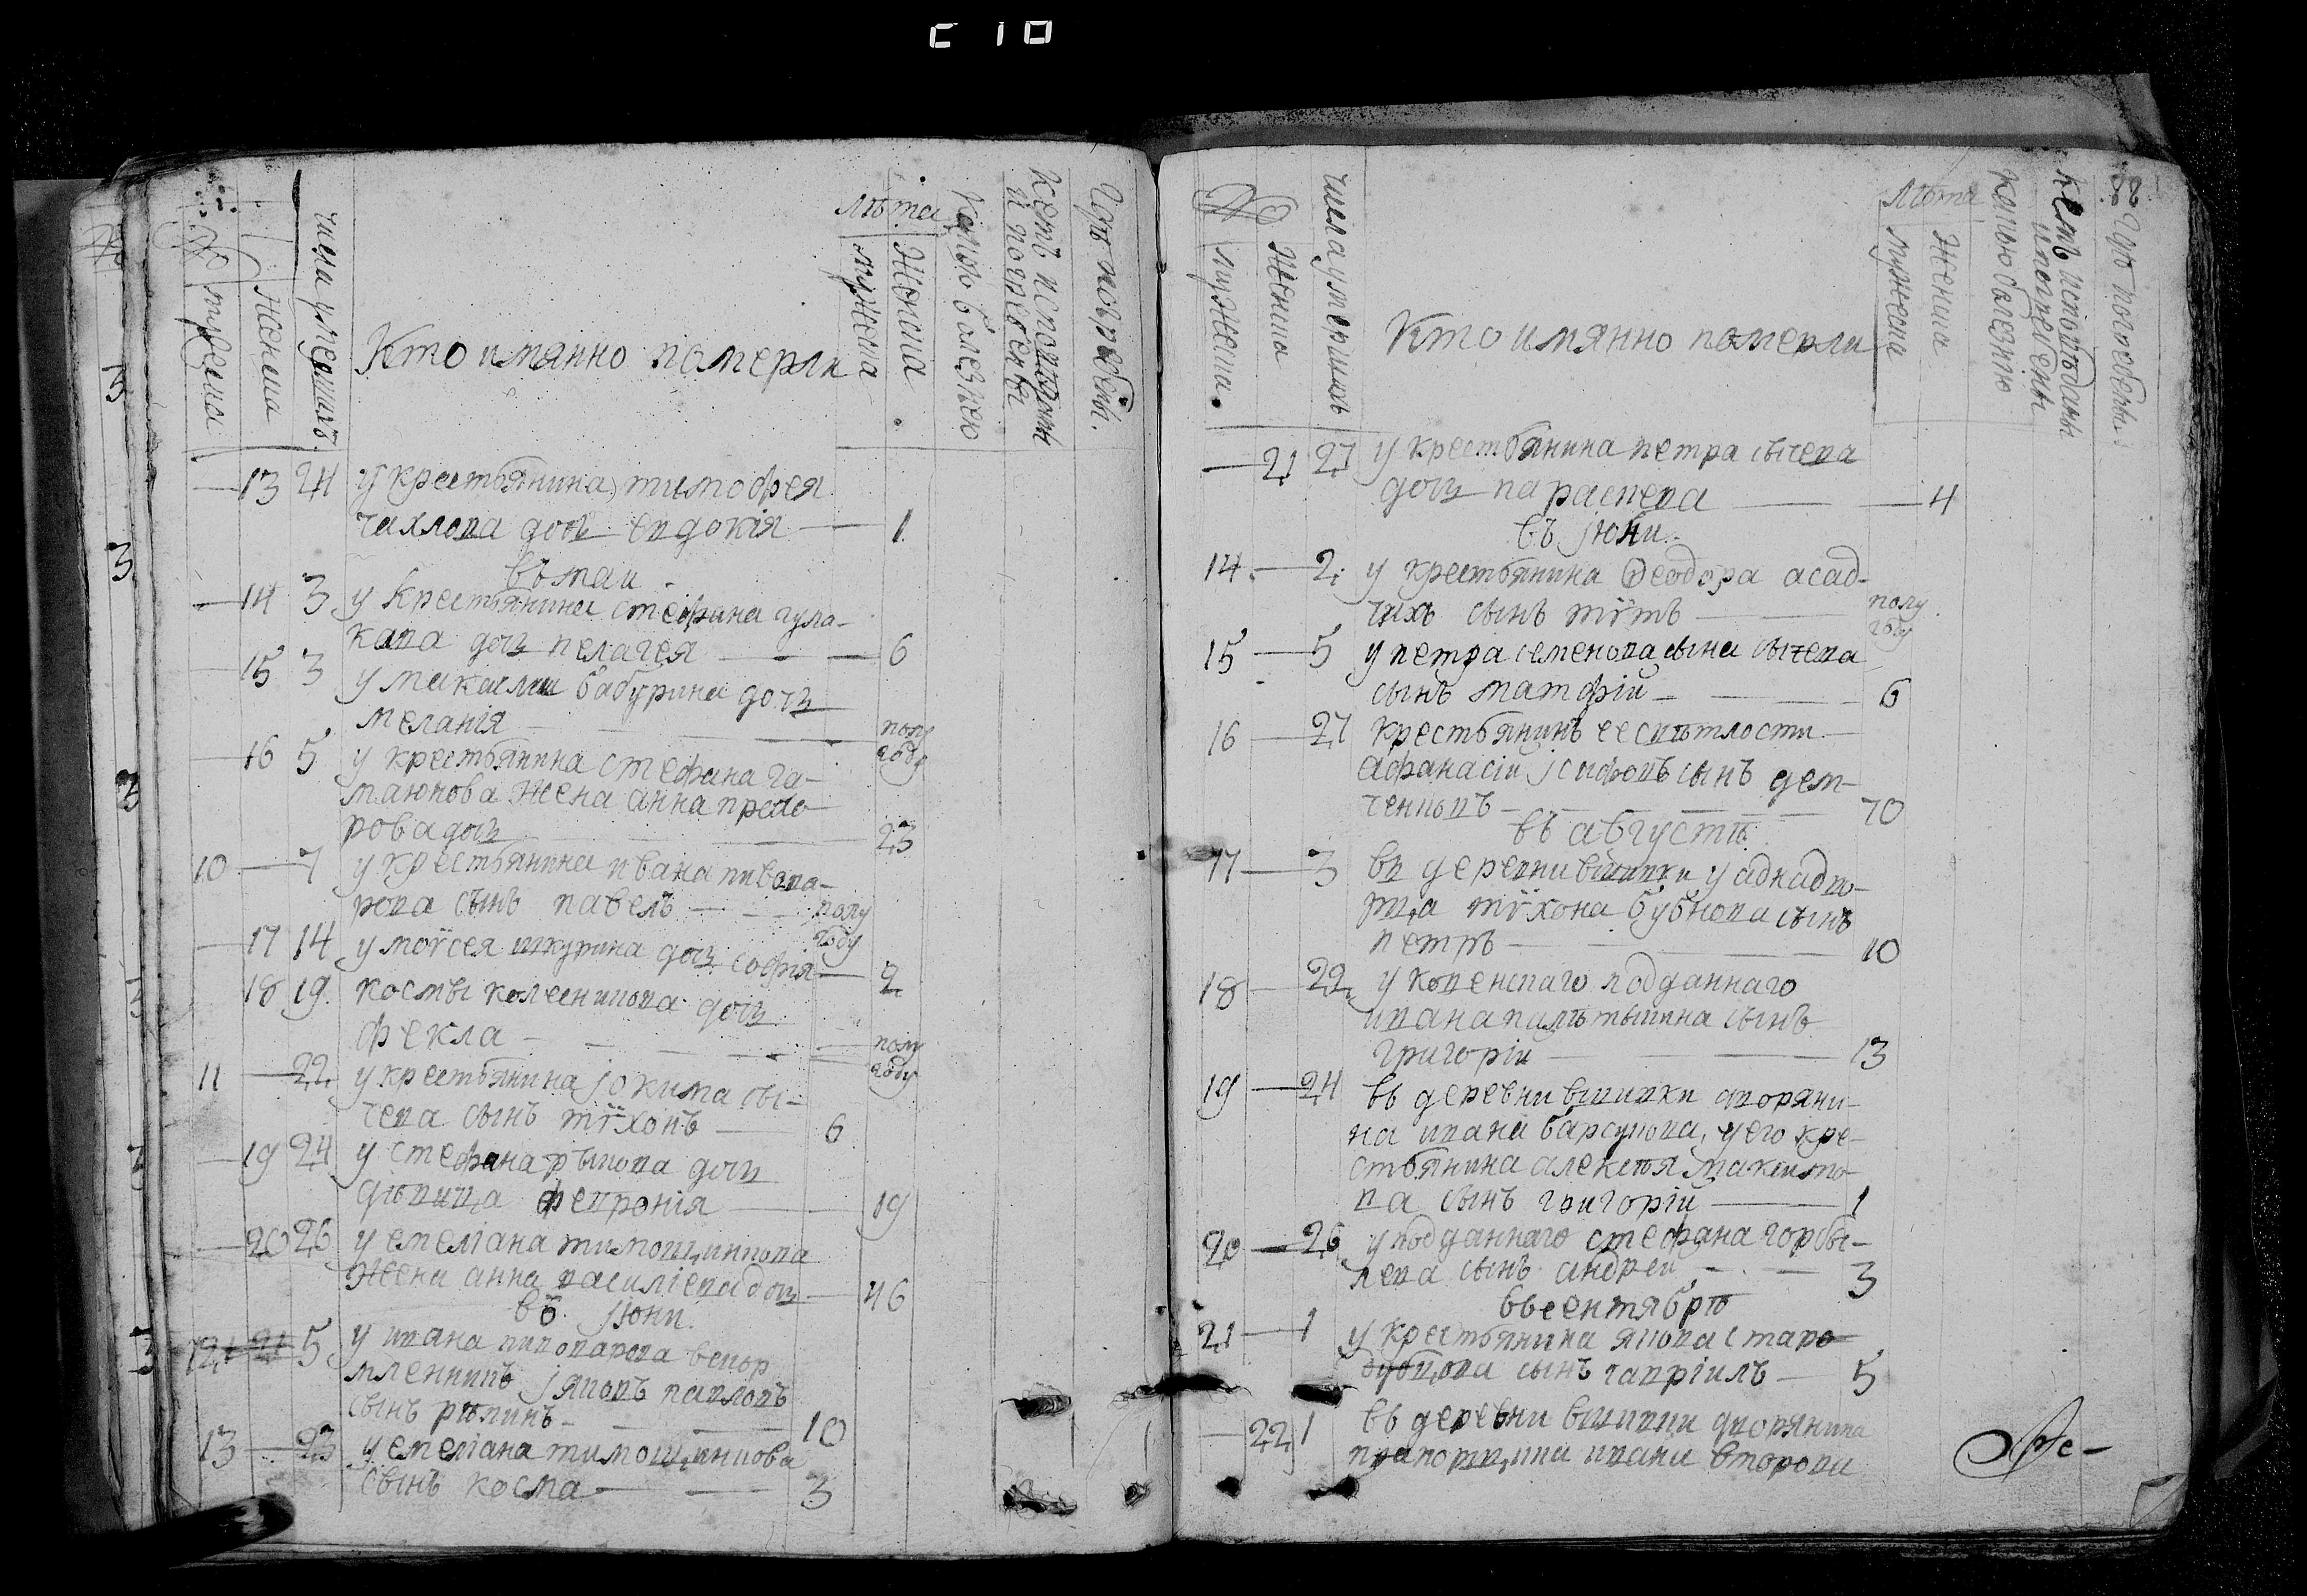 C 10
№
мужеска
женска
числа умершихъ
Кто имянно померли
лѣта
мужеска
женска
какою болезнею
кемъ исповеданы
и погребены
Гдѣ погребены.
13 24 у крестьянина тимофея
чахлова дочь евдокія — 1.
въ маи
14 3 у крестьянина стефана
дочь пелагея — 6
15 3 у михаила бабурина дочь
меланія — полу
году
16 5 у крестьянина стефана га-
жена анна
рова дочь — 23
10 — 7 у крестьянина ивана пивова-
рова сынъ павелъ — полу
году
17 14 у моѵсея шкурина дочь софія — 2
18 19. космы колесникова дочь
фекла — полу
году
11 — 22 у крестьянина іокима сы-
чева сынъ тѵхонъ — 6
19 24 у стефана рыкова дочь
дѣвица февронія — 19
20 26 у емеліана тимощинкова
жена анна василіева дочь — 46
въ іюни.
12 5 у ивана пивоварова вскор
мленникъ іяковъ павловъ
сынъ рѣпинъ — 10
13 — 23 у емеліана тимощинкова
сынъ косма — 3
88
№
мужеска.
женска
числа умершихъ
Кто имянно померли
лѣта
мужеска
женска
какою болезнию
кемъ исповѣданы
и погребены
Гдѣ погребены
21 27 у крестьянина петра сычева
дочь параскева — 4
въ іюни.
14. — 2. у крестьянина Ѳеодора асад-
чихъ сынъ тѵтъ — полу
году
15 — 5 у петра семенова сына сычева
сынъ матфій — 6
16 — 27 крестьянинъ ее свѣтлости
афанасій ісифовъ сынъ дем-
ченковъ — 70
въ августѣ
17 — 3 въ деревни вшивки у аднадво-
рца тѵхона бубнова сынъ
петръ — 10
18 — 22 у подданнаго
ивана сынъ
григоріи — 13
19 — 24 въ деревни вшивки дворяни-
на ивана барсукова, у его кре-
стьянина алексѣя максимо-
ва сынъ григорій — 1
20 — 26 у подданнаго стефана горбы-
лева сынъ андрей — 3
въ сентябрѣ
21 — 1 у крестьянина якова старо-
дубцова сынъ гавріилъ — 5
22 1 въ деревни вшивки дворянина
прапорщика ивана